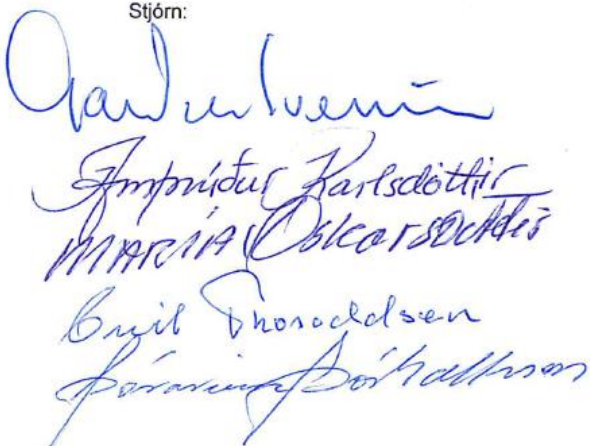 Stjórn:
Garðar Sverrisson
Arnþrúður Karlsdóttir
MARÍA Óskarsdóttir
Emil Thoroddsen
Þórarinn Þórhallsson